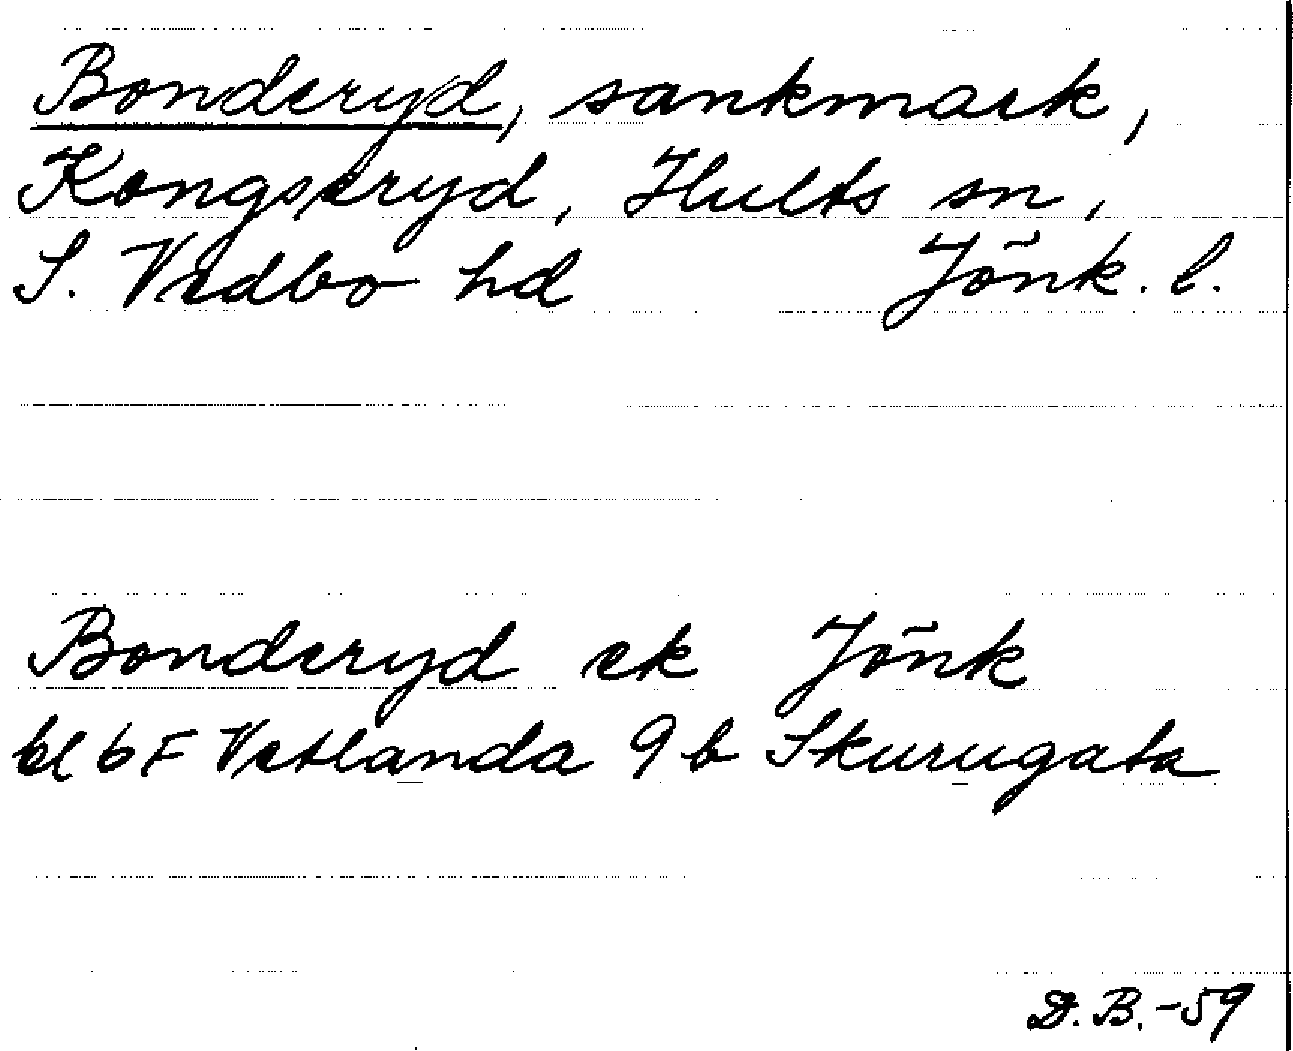 Bonderyd, sankmark,
Kongseryd, Hults sn,
S. Vedbo hd Jönk. l.
Bonderyd ek Jönk
bl 6 F Vetlanda 9 b Skurugata
D.B.-59